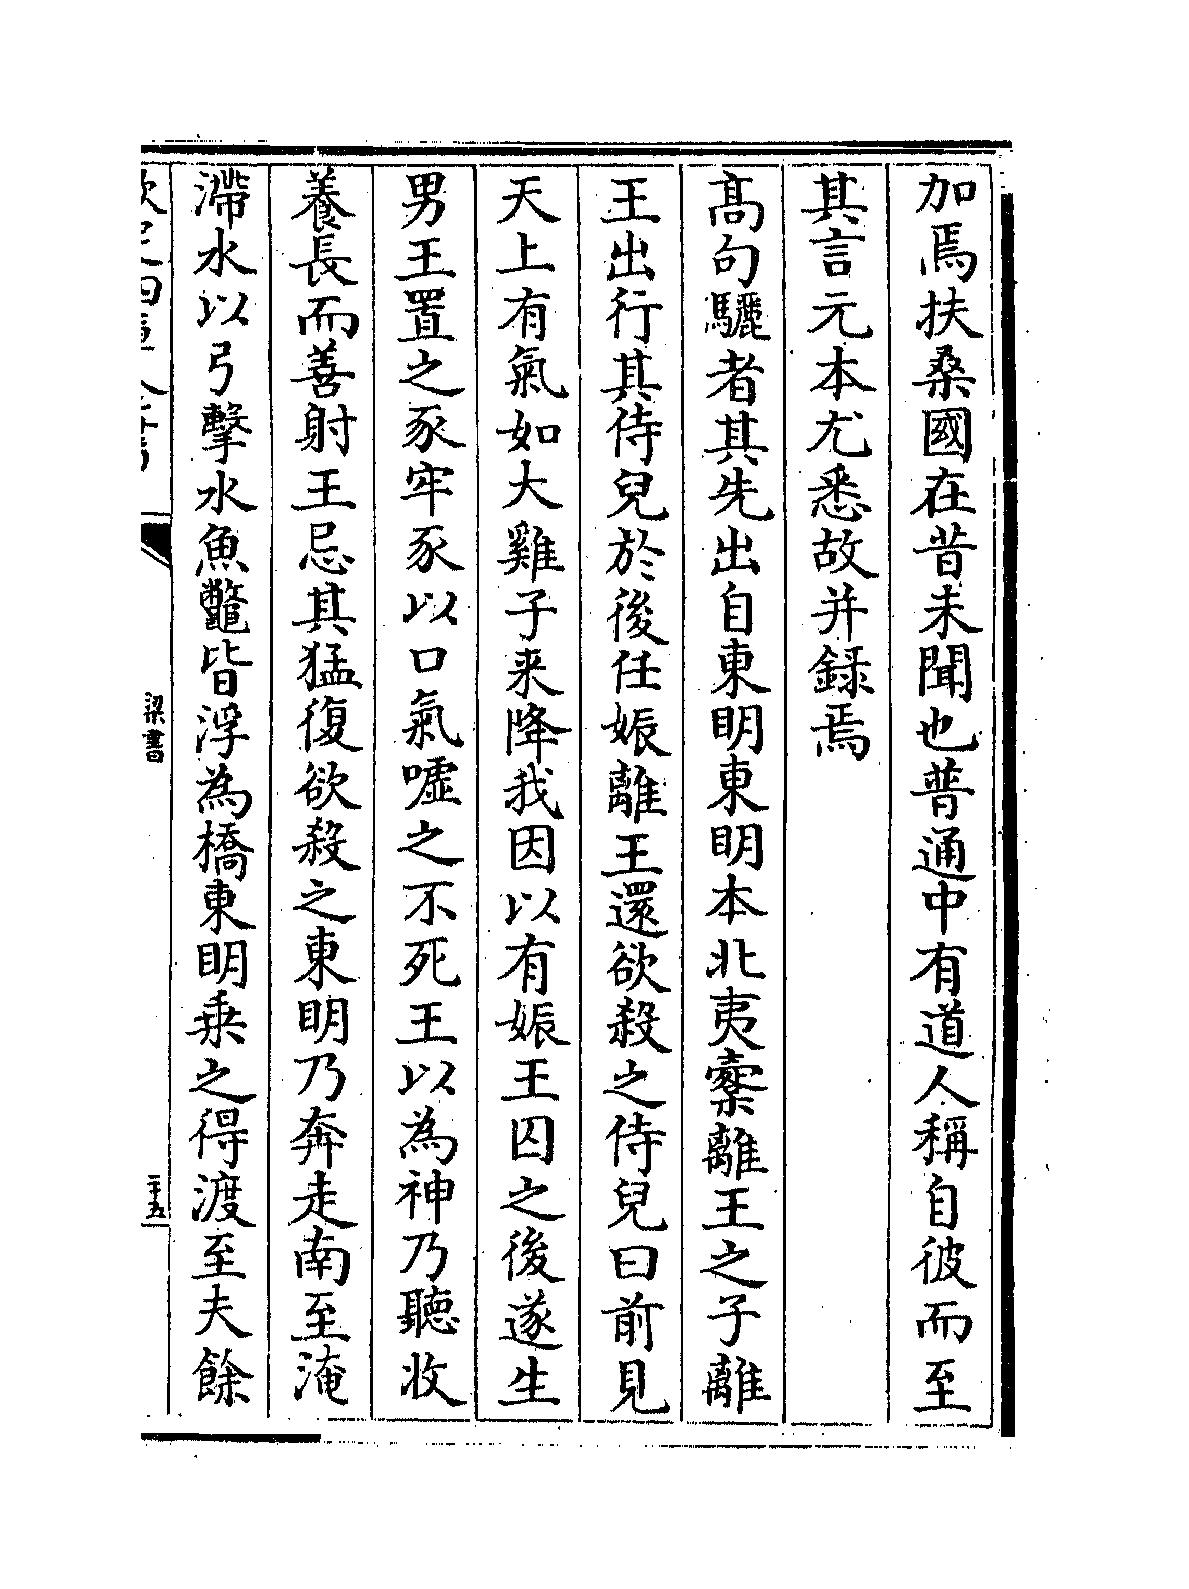 加焉扶桑國在昔未聞也普通中有道人稱自彼而至
其言元本尤悉故并録焉
髙句驪者其先出自東明東明本北夷櫜離王之子離
王出行其侍兒於後任娠離王還欲殺之侍兒曰前見
天上有氣如大雞子来降我因以有娠王囚之後遂生
男王置之豕牢豕以口氣嘘之不死王以為神乃聽收
養長而善射王忌其猛復欲殺之東明乃奔走南至淹
滯水以弓擊水魚鼈皆浮為橋東明乗之得渡至夫餘
欽定四庫全書
梁書
二十五